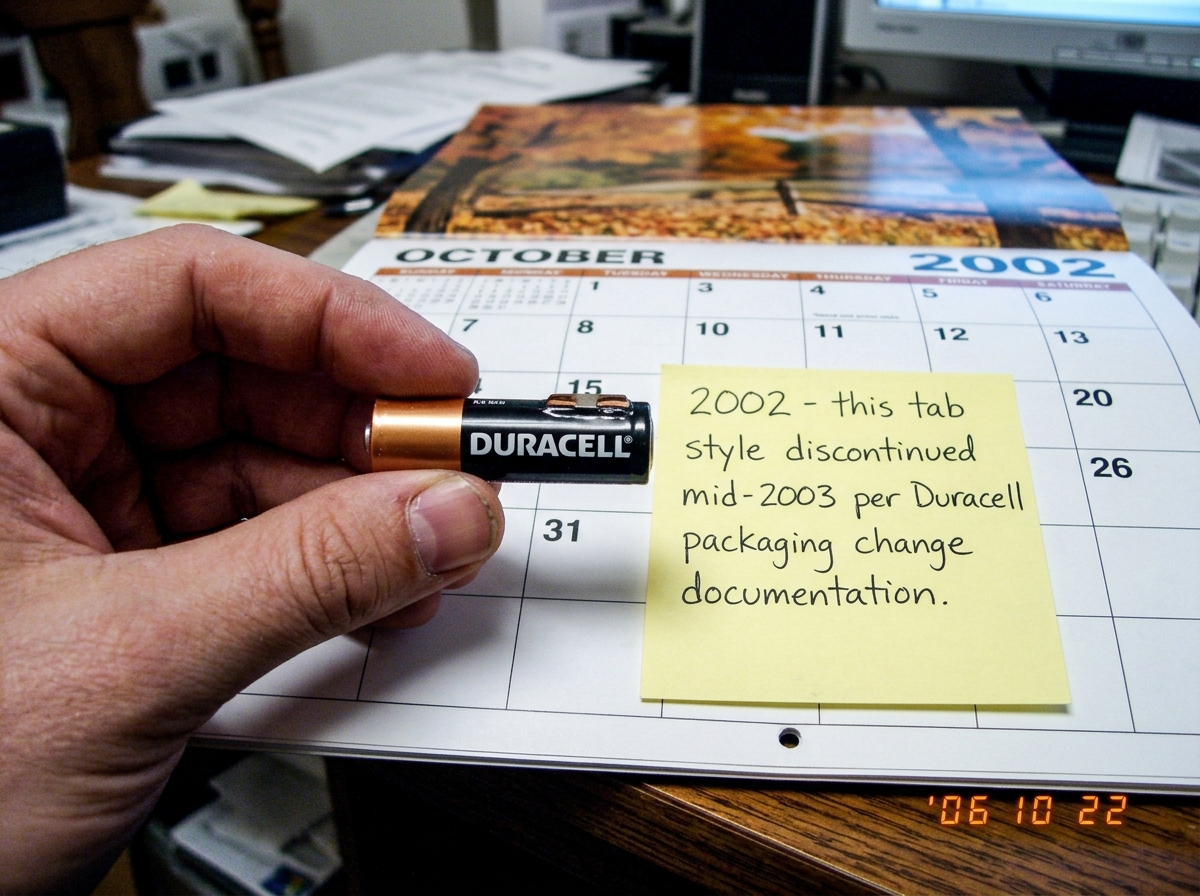 OCTOBER 2002
SUNDAY MONDAY TUESDAY WEDNESDAY THURSDAY FRIDAY SATURDAY
1 3 4 5 6
7 8 10 11 12 13
15 20
26
31
DURACELL®
2002 - this tab
style discontinued
mid-2003 per Duracell
packaging change
documentation.
'06 10 22